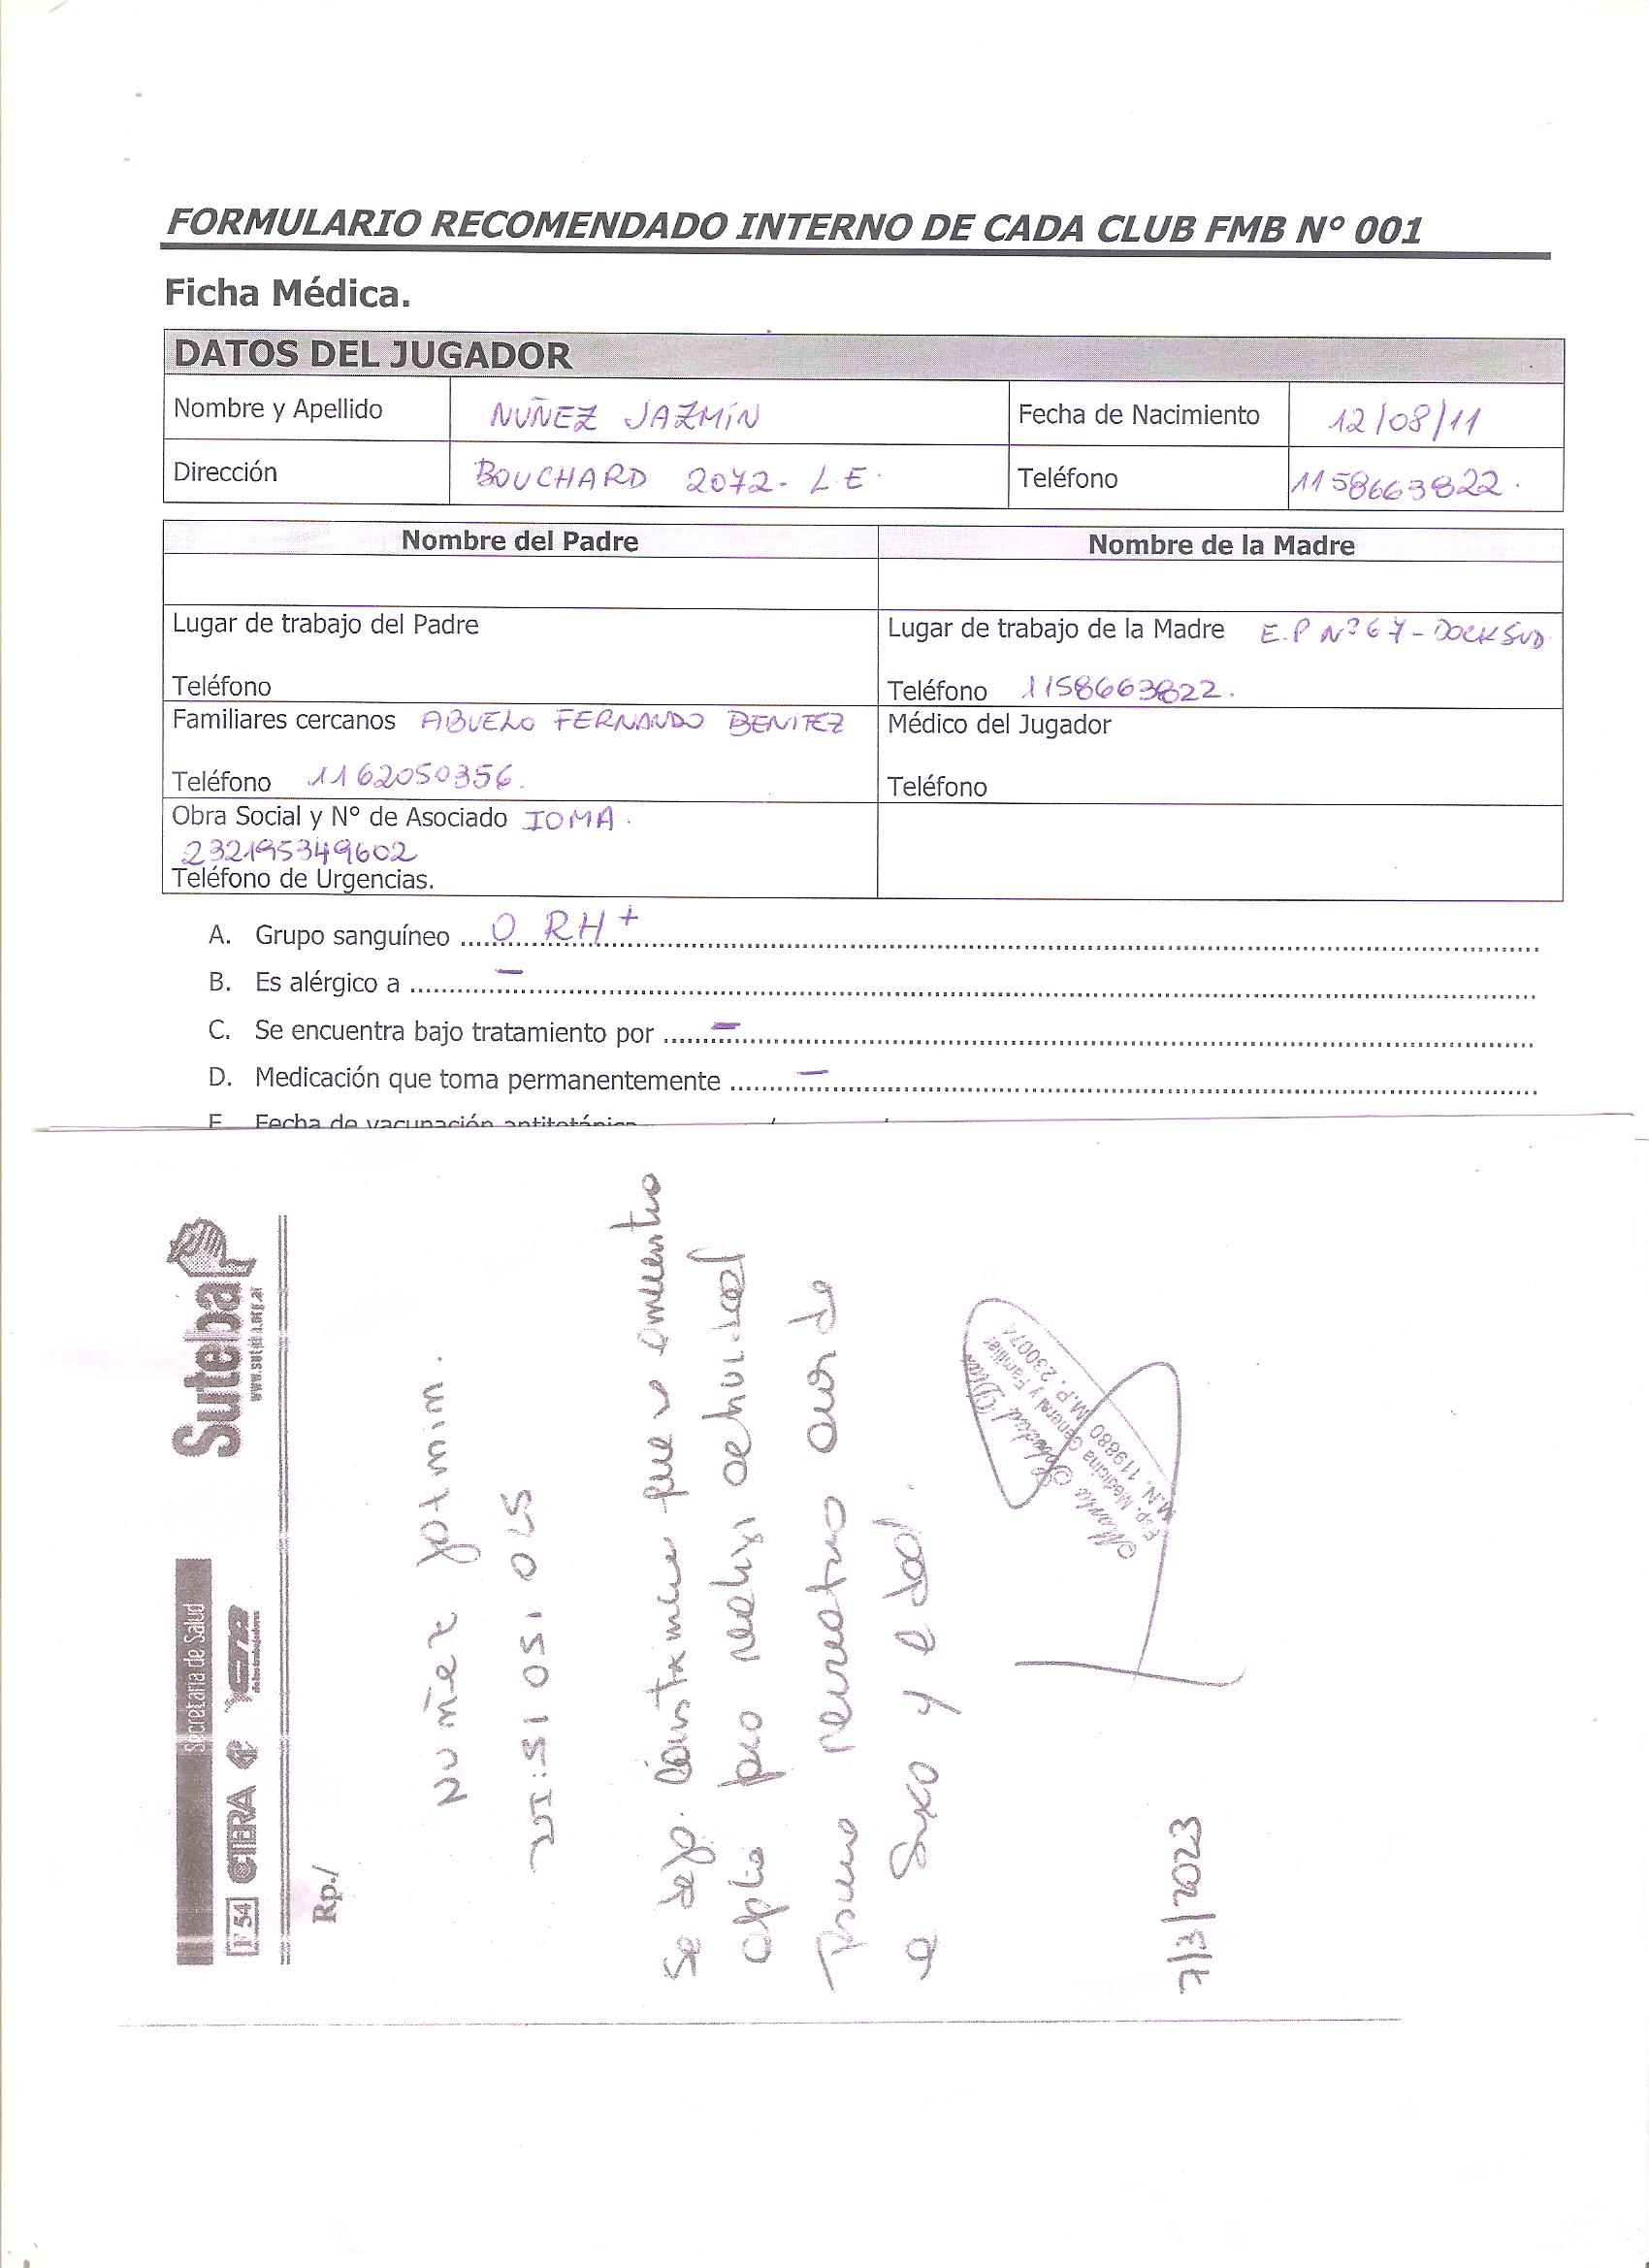 FORMULARIO RECOMENDADO INTERNO DE CADA CLUB FMB N° 001
Ficha Médica.
DATOS DEL JUGADOR
Nombre y Apellido NUÑEZ JAZMÍN Fecha de Nacimiento 12/08/11
Dirección BOUCHARD 2072- L.E. Teléfono 1158663822.
Nombre del Padre Nombre de la Madre
Lugar de trabajo del Padre Lugar de trabajo de la Madre E.P N° 67 - DOCK SUD
Teléfono Teléfono 1158663822.
Familiares cercanos ABUELO FERNANDO BENITEZ Médico del Jugador
Teléfono 1162050356. Teléfono
Obra Social y N° de Asociado IOMA.
232195349602
Teléfono de Urgencias.
A. Grupo sanguíneo O RH+
B. Es alérgico a -
C. Se encuentra bajo tratamiento por -
D. Medicación que toma permanentemente -
E Fecha de vacunación antitetánica
Secretaría de Salud
F 54 CTERA CTA Suteba
de los trabajadores www.suteba.org.ar
Rp./
Nuñez Jazmin.
51 051 015
Se deja constancia que se encuentra
apta para realizar actividad
física recreativa acorde
a sexo y edad.
Soledad
Esp. Medicina General y Familiar
M.N. 119880 M.P. 230074
7/3/2023